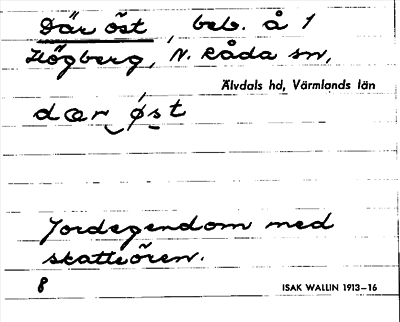 Där öst, beb. å 1
Högberg, N. Råda sn,
Älvdals hd, Värmlands län
dær øst
Jordegendom med
skatteören.
8
ISAK WALLIN 1913–16